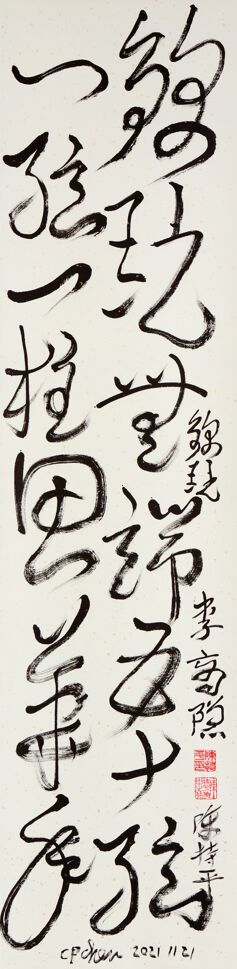 錦瑟無端五十絃
一絃一柱思華年
錦瑟 李商隱 陳持平
CP Chen 2021 11 21